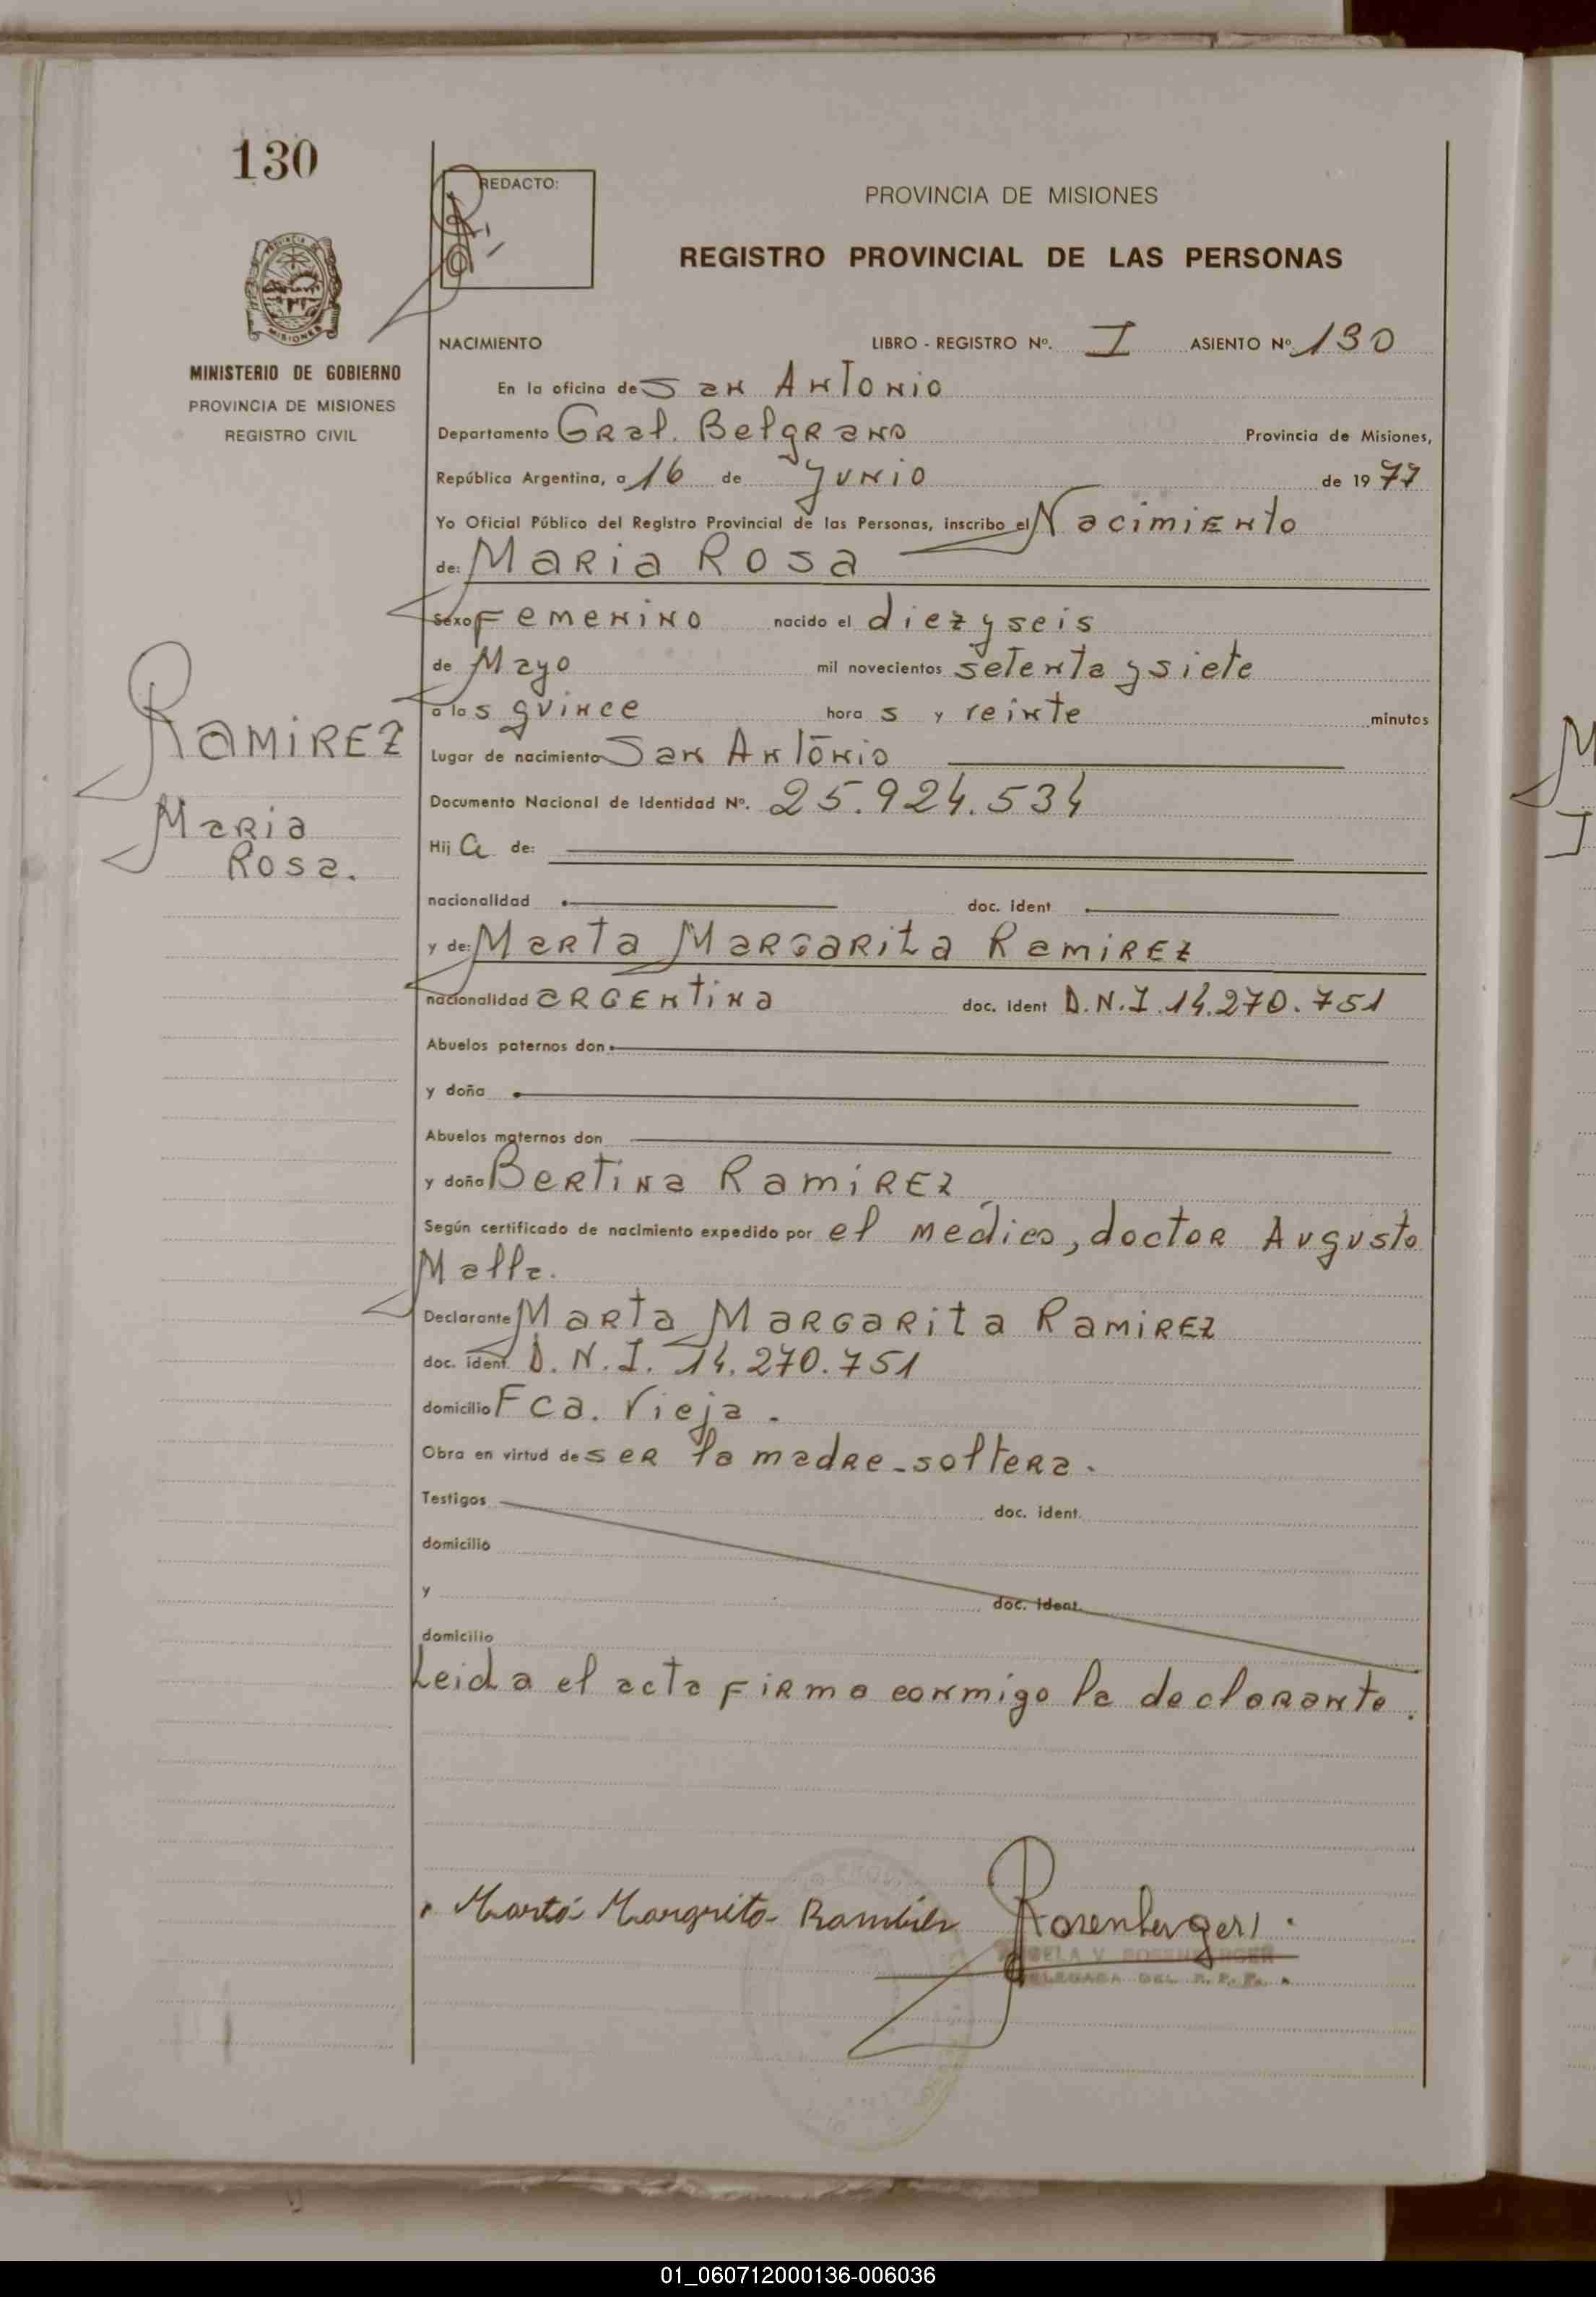 130
REDACTO:
PROVINCIA DE MISIONES
REGISTRO PROVINCIAL DE LAS PERSONAS
MINISTERIO DE GOBIERNO
PROVINCIA DE MISIONES
REGISTRO CIVIL
NACIMIENTO LIBRO - REGISTRO Nº. I ASIENTO Nº. 130
En la oficina de San Antonio
Departamento Gral. Belgrano Provincia de Misiones,
República Argentina, a 16 de Junio de 1977
Yo Oficial Público del Registro Provincial de las Personas, inscribo el Nacimiento
de: Maria Rosa
Sexo Femenino nacido el diez y seis
de Mayo mil novecientos setenta y siete
a las quince hora s y veinte minutos
Lugar de nacimiento San Antonio
Documento Nacional de Identidad Nº. 25.924.534
Hij a de:
nacionalidad doc. ident
y de: Marta Margarita Ramirez
nacionalidad argentina doc. ident D.N.I. 14.270.751
Abuelos paternos don
y doña
Abuelos maternos don
y doña Bertina Ramirez
Según certificado de nacimiento expedido por el médico, doctor Augusto
Malla.
Declarante Marta Margarita Ramirez
doc. ident. D.N.I. 14.270.751
domicilio Fca. Vieja.
Obra en virtud de ser la madre-soltera.
Testigos doc. ident.
domicilio
y doc. ident.
domicilio
Leida el acta firma conmigo la declarante.
Ramirez
Maria
Rosa.
Marta Margrita Ramirez Rosenberger
V. ROSENBERGER
DELEGADA DEL R. P. P.
01_060712000136-006036